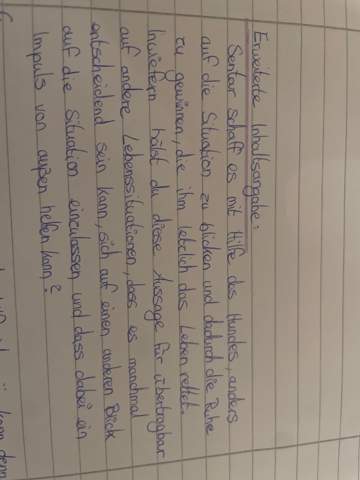 Erweiterte Inhaltsangabe:
Sentar schafft es mit Hilfe des Hundes, anders
auf die Situation zu blicken und dadurch die Ruhe
zu gewinnen, die ihm letztlich das Leben rettet.
Inwiefern hälst du diese Aussage für übertragbar
auf andere Lebenssituationen, dass es manchmal
entscheidend sein kann, sich auf einen anderen Blick
auf die Situation einzulassen und dass dabei ein
Impuls von außen helfen kann?